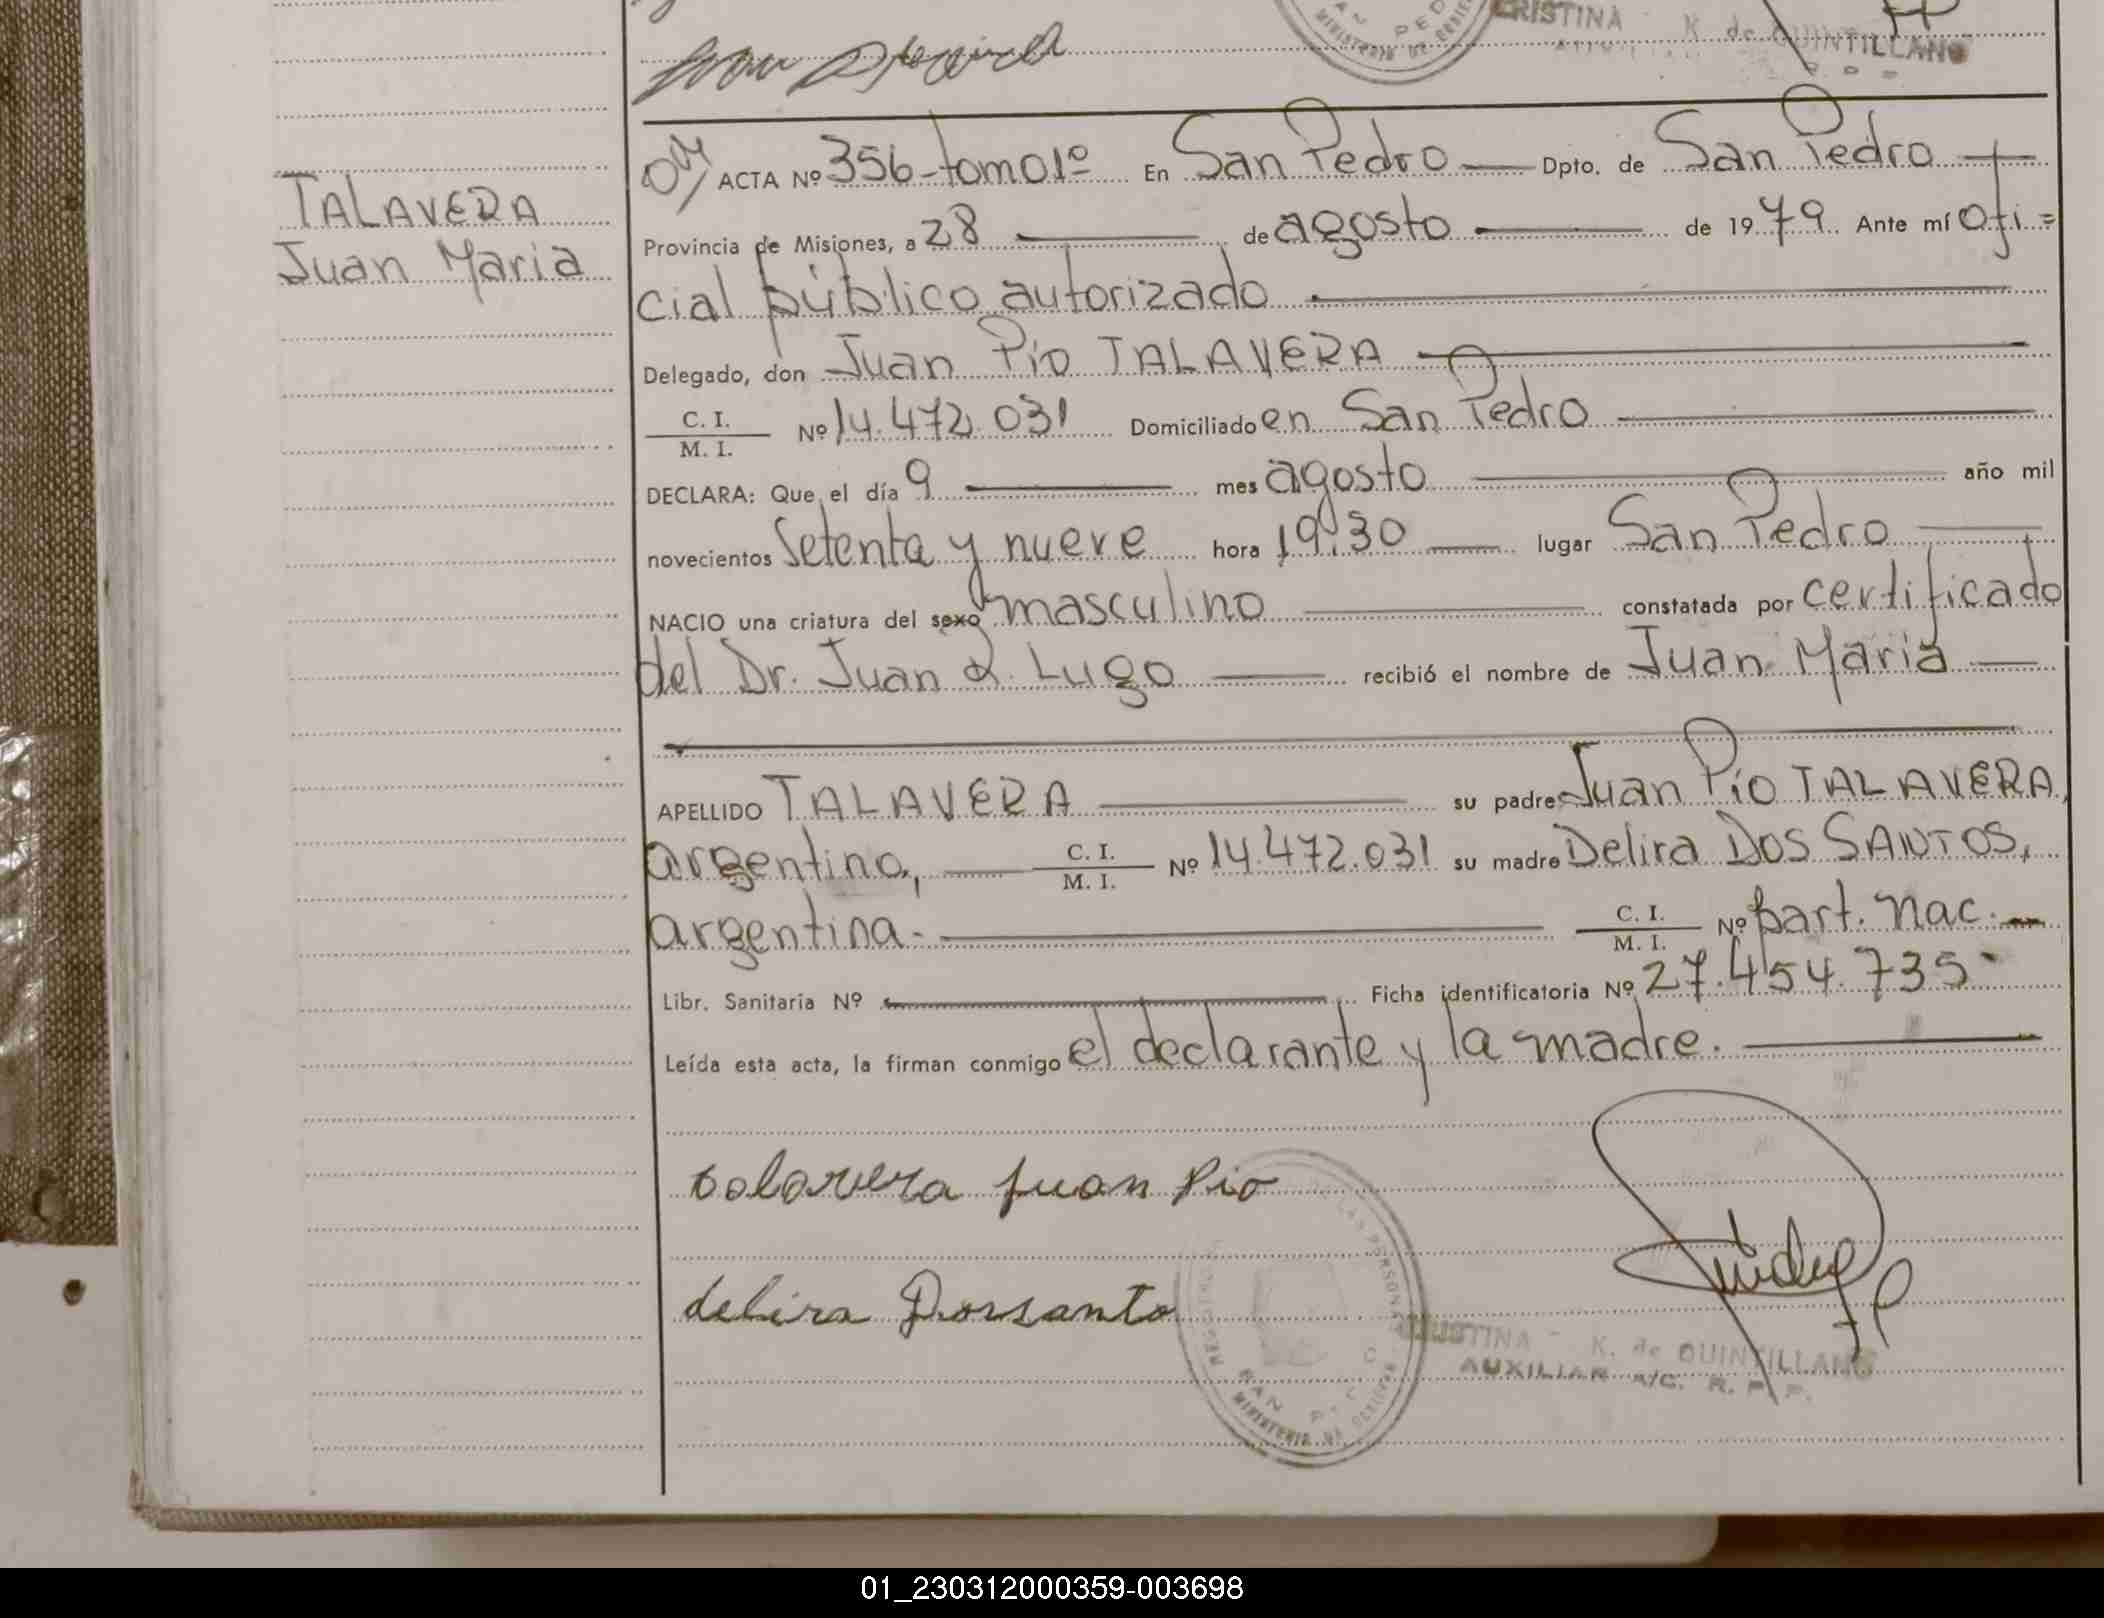 CRISTINA K. de QUINTILLAN
TALAVERA
Juan Maria
ACTA Nº 356-tomo 1º En San Pedro Dpto. de San Pedro
Provincia de Misiones, a 28 de agosto de 1979 Ante mí ofi=
cial público autorizado
Delegado, don Juan Pío TALAVERA
C. I. / M. I. Nº 14.472.031 Domiciliado en San Pedro
DECLARA: Que el día 9 mes agosto año mil
novecientos setenta y nueve hora 19.30 lugar San Pedro
NACIO una criatura del sexo masculino constatada por certificado
del Dr. Juan R. Lugo recibió el nombre de Juan Maria
APELLIDO TALAVERA su padre Juan Pío TALAVERA,
argentino, C. I. / M. I. Nº 14.472.031 su madre Delira DOS SANTOS,
argentina. C. I. / M. I. Nº part. nac.
Libr. Sanitaria Nº Ficha identificatoria Nº 27.454.735
Leída esta acta, la firman conmigo el declarante y la madre.
talavera Juan Pio
delira Dorsanto
K. de QUINTILLAN
AUXILIAR A/C. R. P. P.
01_230312000359-003698